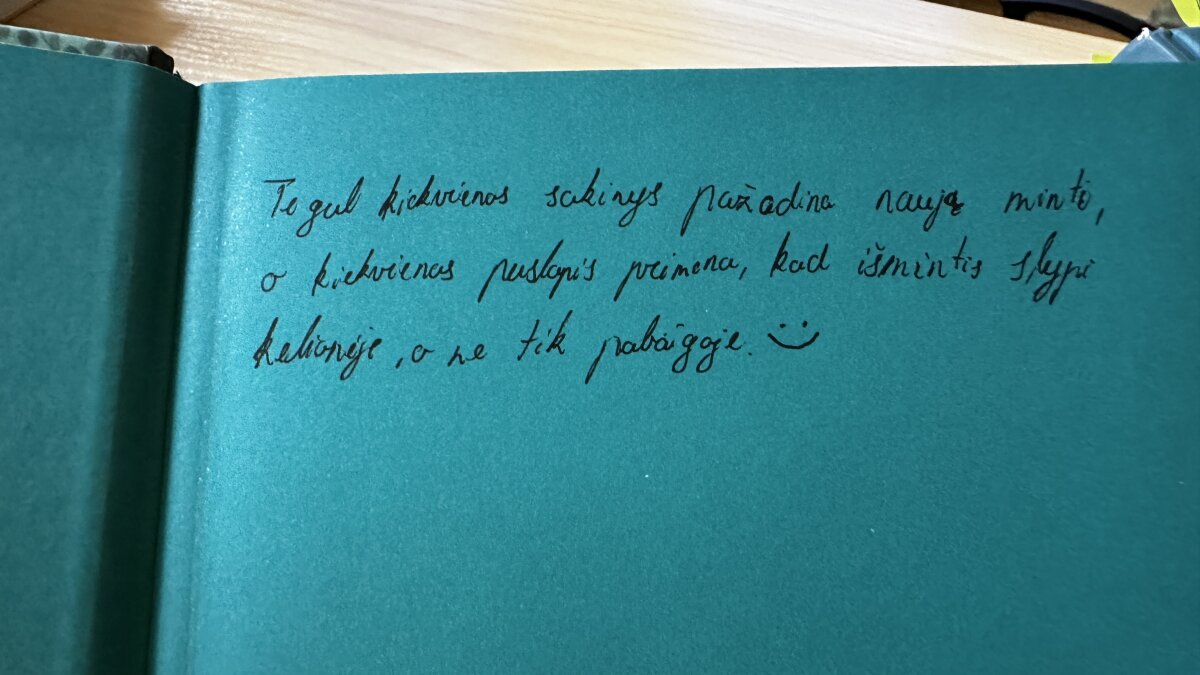 Tegul kiekvienas sakinys pažadina naują mintį,
o kiekvienas puslapis primena, kad išmintis slypi
kelionėje, o ne tik pabaigoje. :)